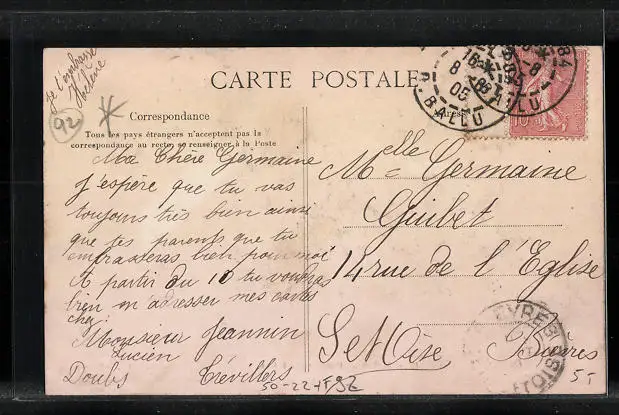 Je t'embrasse
Hélène
92
CARTE POSTALE
Correspondance
Tous les pays étrangers n'acceptent pas la
correspondance au recto, se renseigner à la Poste
Ma Chère Germaine
J'espère que tu vas
toujours très bien ainsi
que tes parents que tu
embrasseras bien pour moi
A partir du 10 tu voudras
bien m'adresser mes cartes
chez
Monsieur Jeannin
Lucien
Doubs Trévillers
Melle Germaine
Guibet
14 rue de l'Eglise
Set Oise Bièvres
R. BALLU
8
05
84
10
50-22+F92
5-